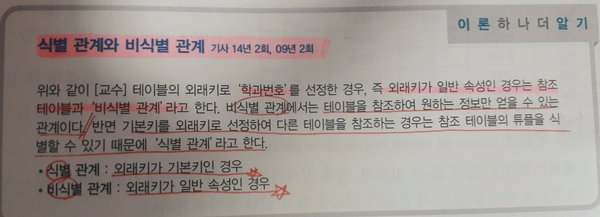 이 론 하 나 더 알 기
식별 관계와 비식별 관계 기사 14년 2회, 09년 2회
위와 같이 [교수] 테이블의 외래키로 '학과번호'를 선정한 경우, 즉 외래키가 일반 속성인 경우는 참조
테이블과 '비식별 관계'라고 한다. 비식별 관계에서는 테이블을 참조하여 원하는 정보만 얻을 수 있는
관계이다. 반면 기본키를 외래키로 선정하여 다른 테이블을 참조하는 경우는 참조 테이블의 튜플을 식
별할 수 있기 때문에 '식별 관계'라고 한다.
• 식별 관계 : 외래키가 기본키인 경우
• 비식별 관계 : 외래키가 일반 속성인 경우